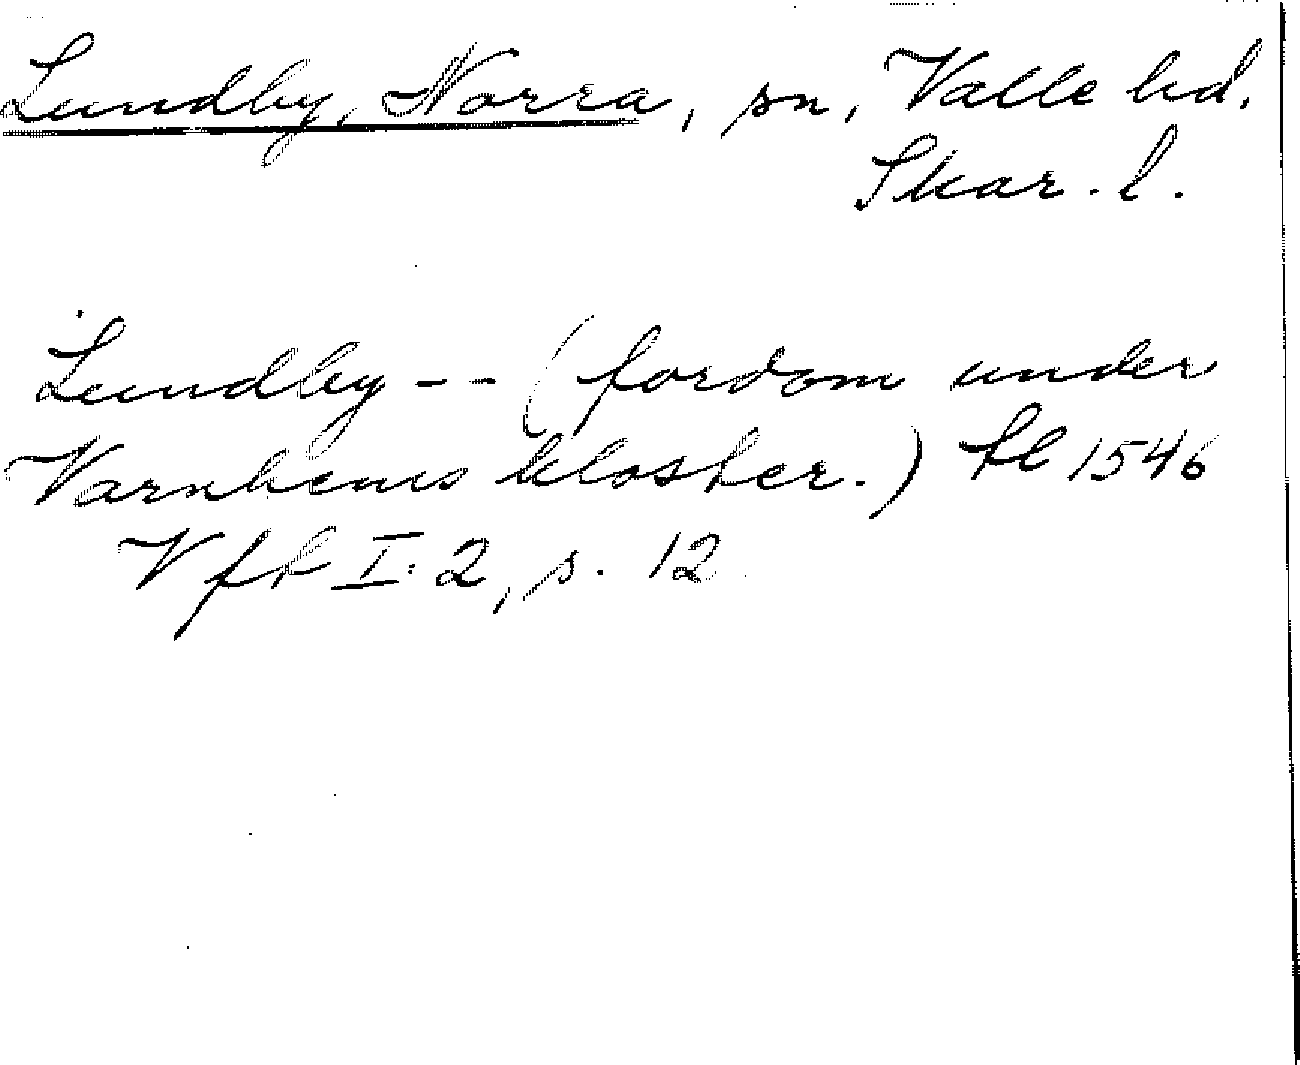 Lundby, Norra, sn, Valle hd.
Skar. l.
Lundby -- (fordom under
Varnhems kloster.) fl 1546
Vff I: 2, s. 12